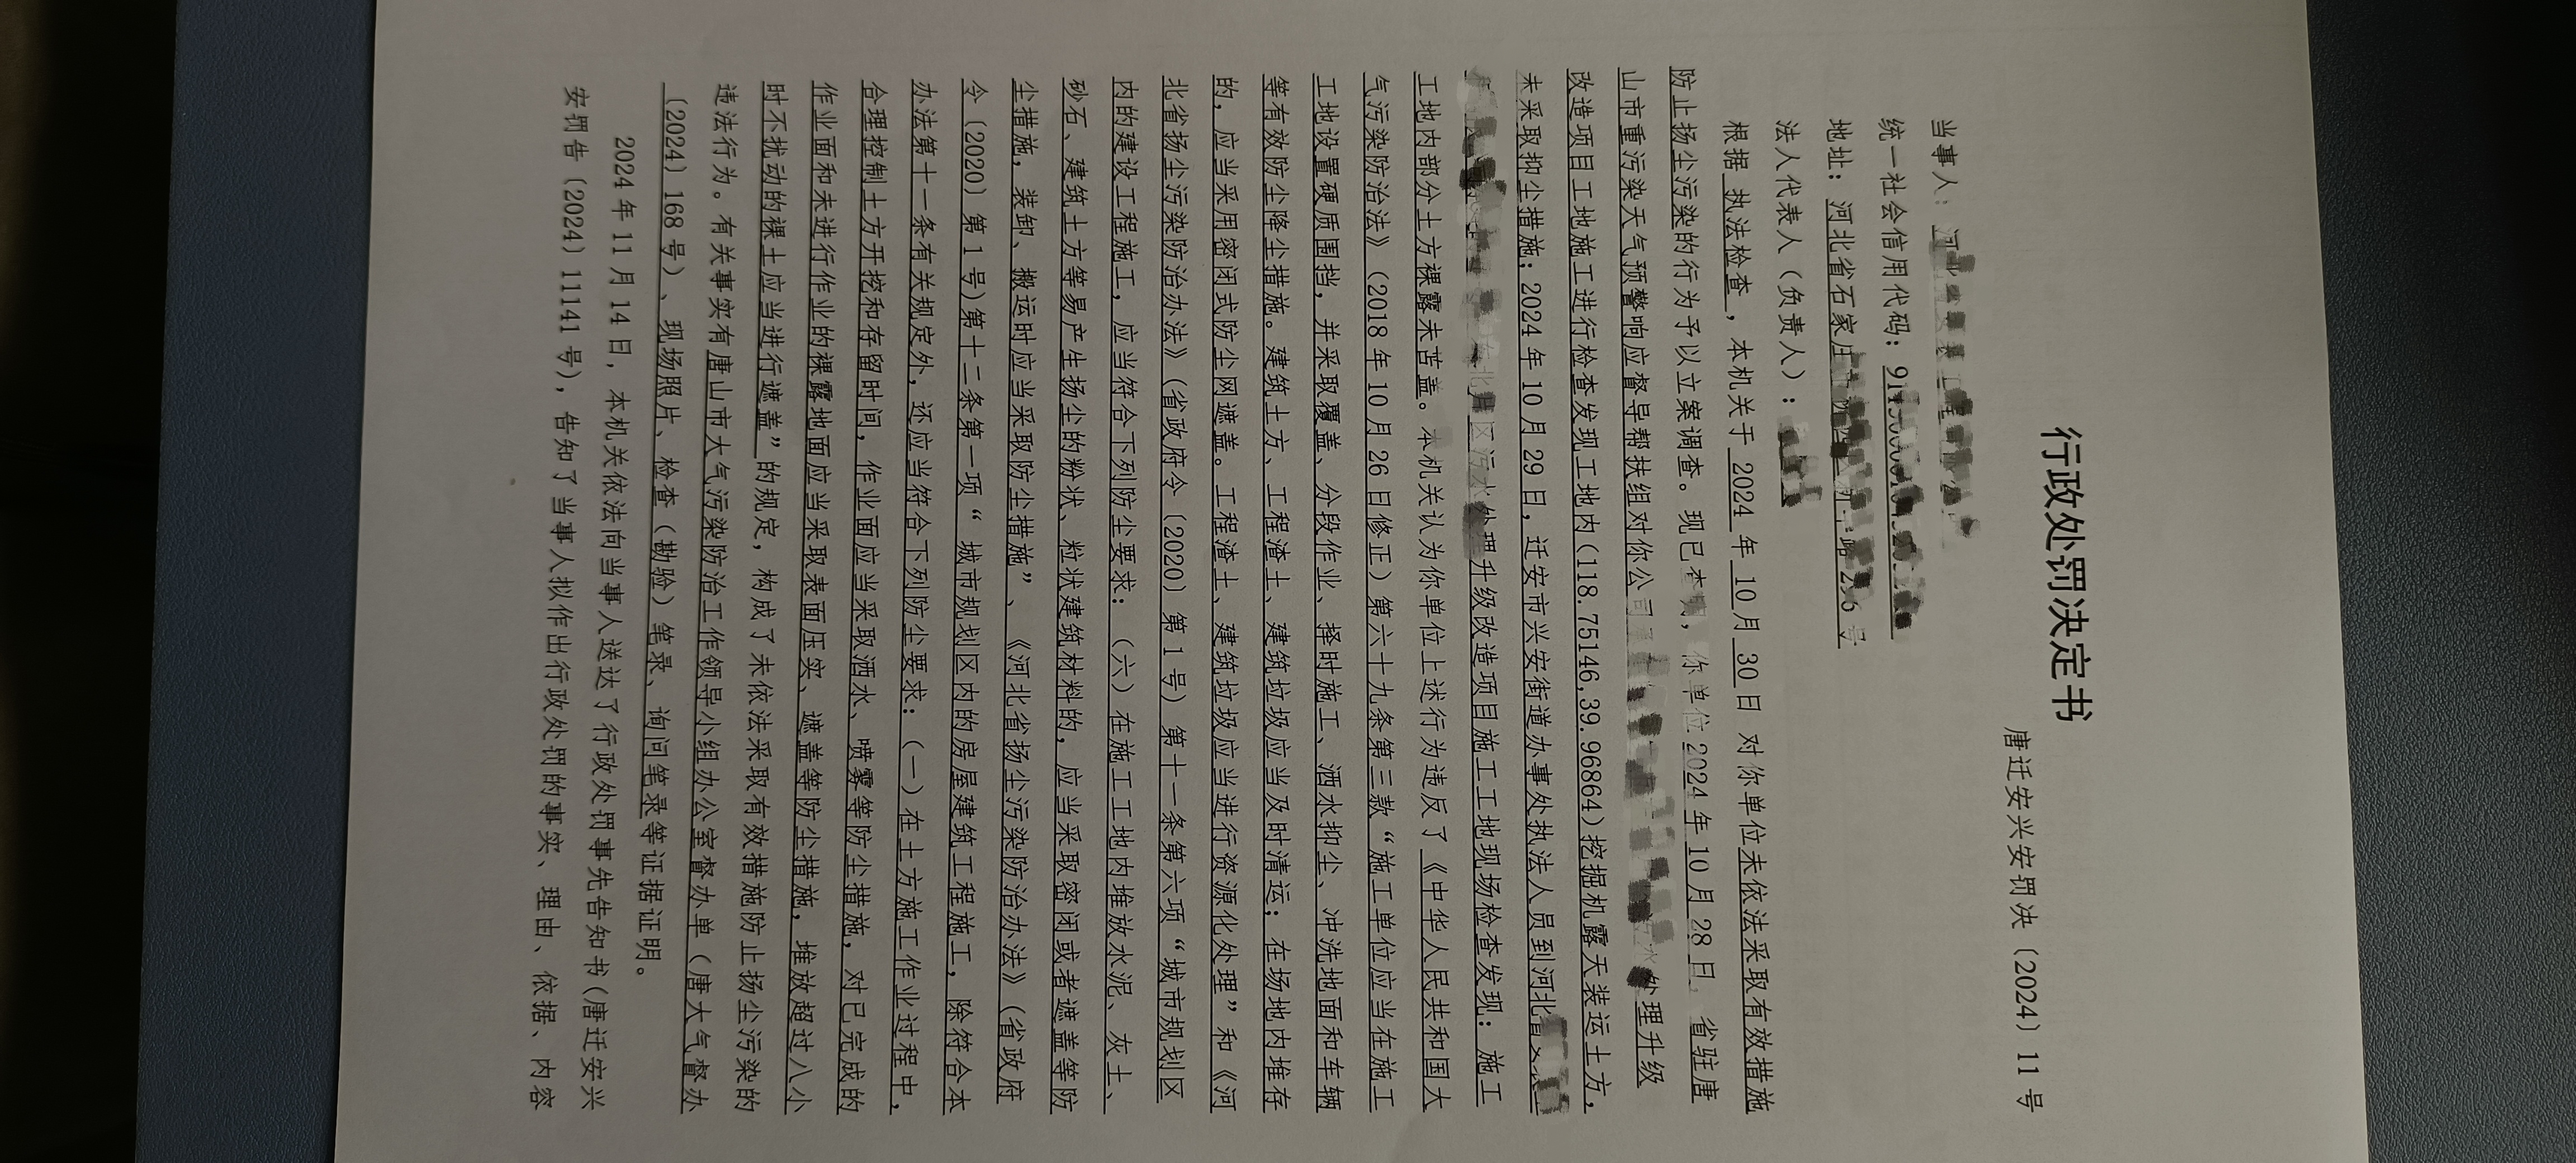 行政处罚决定书
唐迁安兴安罚决〔2024〕11 号
当事人：
统一社会信用代码：
地址：河北省石家庄 路 296 号
法人代表人（负责人）：
根据 执法检查 ，本机关于 2024 年 10 月 30 日 对你单位未依法采取有效措施
防止扬尘污染的行为予以立案调查。现已 ，你单位 2024 年 10 月 28 日，省驻唐
山市重污染天气预警响应督导帮扶组对你公司 处理升级
改造项目工地施工进行检查发现工地内（118.75146,39.96864）挖掘机露天装运土方，
未采取抑尘措施；2024 年 10 月 29 日，迁安市兴安街道办事处执法人员到河北省
区污水处理升级改造项目施工工地现场检查发现：施工
工地内部分土方裸露未苫盖。本机关认为你单位上述行为违反了《中华人民共和国大
气污染防治法》（2018 年 10 月 26 日修正）第六十九条第三款“施工单位应当在施工
工地设置硬质围挡，并采取覆盖、分段作业、择时施工、洒水抑尘、冲洗地面和车辆
等有效防尘降尘措施。建筑土方、工程渣土、建筑垃圾应当及时清运；在场地内堆存
的，应当采用密闭式防尘网遮盖。工程渣土、建筑垃圾应当进行资源化处理”和《河
北省扬尘污染防治办法》（省政府令〔2020〕第 1 号）第十一条第六项“城市规划区
内的建设工程施工，应当符合下列防尘要求：（六）在施工工地内堆放水泥、灰土、
砂石、建筑土方等易产生扬尘的粉状、粒状建筑材料的，应当采取密闭或者遮盖等防
尘措施，装卸、搬运时应当采取防尘措施”、《河北省扬尘污染防治办法》（省政府
令〔2020〕第 1 号）第十二条第一项“城市规划区内的房屋建筑工程施工，除符合本
办法第十一条有关规定外，还应当符合下列防尘要求：（一）在土方施工作业过程中，
合理控制土方开挖和存留时间，作业面应当采取洒水、喷雾等防尘措施，对已完成的
作业面和未进行作业的裸露地面应当采取表面压实、遮盖等防尘措施，堆放超过八小
时不扰动的裸土应当进行遮盖”的规定，构成了未依法采取有效措施防止扬尘污染的
违法行为。有关事实有唐山市大气污染防治工作领导小组办公室督办单（唐大气督办
〔2024〕168 号）、现场照片、检查（勘验）笔录、询问笔录等证据证明。
2024 年 11 月 14 日，本机关依法向当事人送达了行政处罚事先告知书（唐迁安兴
安罚告〔2024〕11141 号），告知了当事人拟作出行政处罚的事实、理由、依据、内容